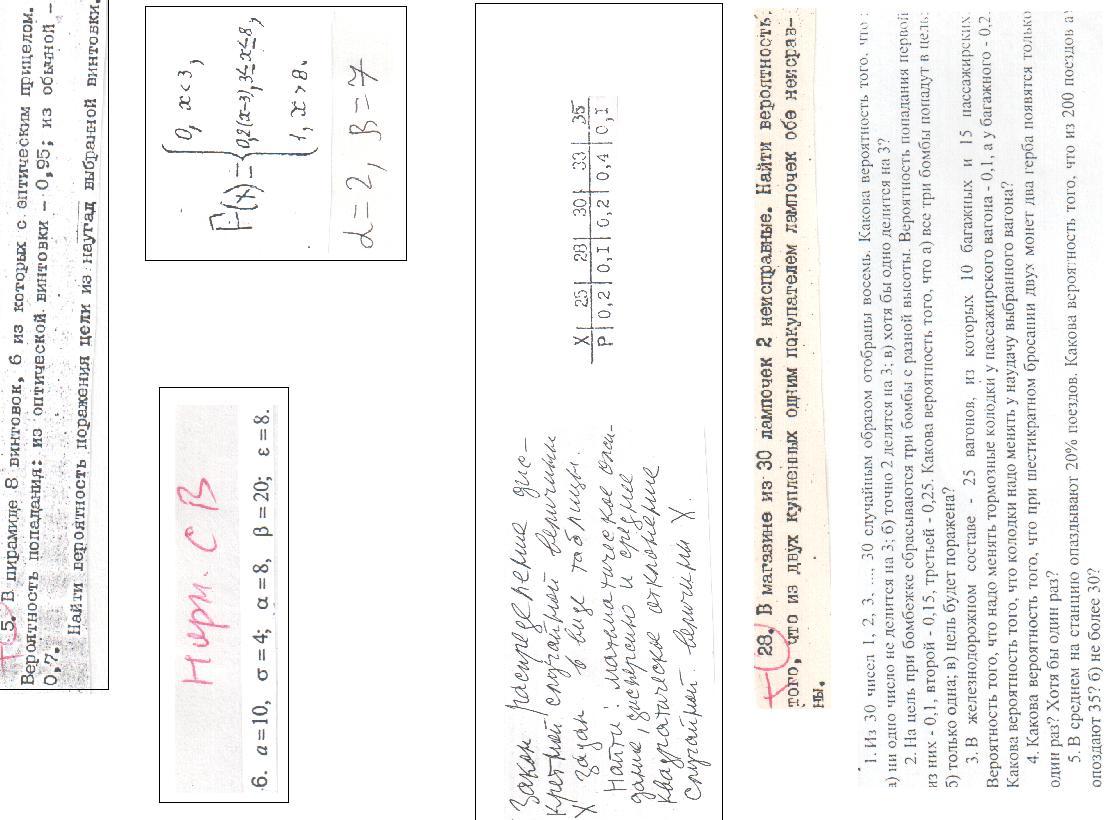 5. В пирамиде 8 винтовок, 6 из которых с оптическим прицелом.
Вероятность попадания: из оптической винтовки - 0,95; из обычной -
0,7.
Найти вероятность поражения цели из наугад выбранной винтовки.
F(x) = { 0, x<3,
0,2(x-3), 3≤x≤8,
1, x>8.
α=2, β=7
Норм. СВ
6. a=10, σ=4; α=8, β=20; ε=8.
Закон распределения дис-
кретной случайной величины
X задан в виде таблицы.
Найти: математическое ожи-
дание, дисперсию и среднее
квадратическое отклонение
случайной величины X.
X | 25 | 28 | 30 | 33 | 35
P | 0,2 | 0,1 | 0,2 | 0,4 | 0,1
28. В магазине из 30 лампочек 2 неисправные. Найти вероятность
того, что из двух купленных одним покупателем лампочек обе неисправ-
ны.
1. Из 30 чисел 1, 2, 3, ..., 30 случайным образом отобраны восемь. Какова вероятность того, что :
а) ни одно число не делится на 3; б) точно 2 делятся на 3; в) хотя бы одно делится на 3?
2. На цель при бомбежке сбрасываются три бомбы с разной высоты. Вероятность попадания первой
из них - 0,1, второй - 0,15, третьей - 0,25. Какова вероятность того, что а) все три бомбы попадут в цель;
б) только одна; в) цель будет поражена?
3. В железнодорожном составе - 25 вагонов, из которых 10 багажных и 15 пассажирских.
Вероятность того, что надо менять тормозные колодки у пассажирского вагона - 0,1, а у багажного - 0,2.
Какова вероятность того, что колодки надо менять у наудачу выбранного вагона?
4. Какова вероятность того, что при шестикратном бросании двух монет два герба появятся только
один раз? Хотя бы один раз?
5. В среднем на станцию опаздывают 20% поездов. Какова вероятность того, что из 200 поездов а)
опоздают 35? б) не более 30?